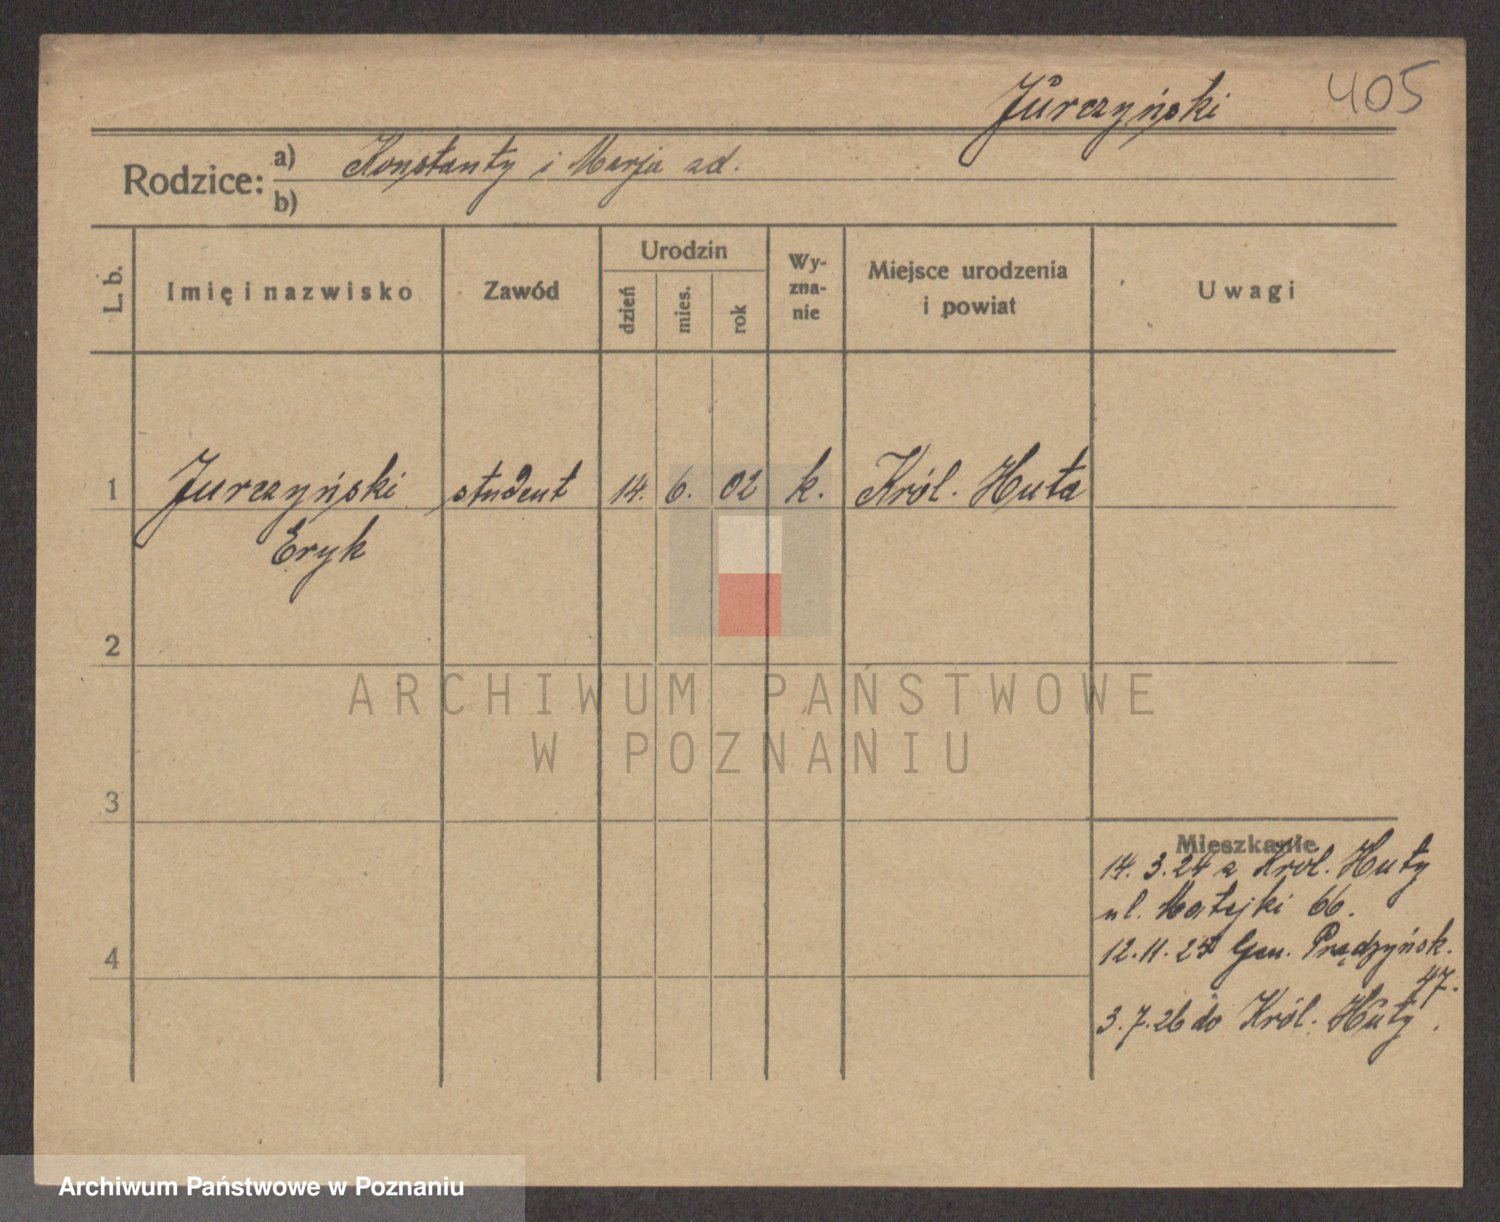 Jurczyński 405
Rodzice: a) Konstanty i Marja
b)
L. b.
Imię i nazwisko
Zawód
Urodzin
dzień
mies.
rok
Wy-
zna-
nie
Miejsce urodzenia
i powiat
Uwagi
1 Jurczyński student 14. 6. 02 k. Król. Huta
Eryk
2
3
4
Mieszkanie
14. 3. 24 z Król. Huty
ul. Matejki 66.
12. 11. Gen. Prądzyńsk.
47.
3. 7. 26 do Król. Huty.
ARCHIWUM PAŃSTWOWE
W POZNANIU
Archiwum Państwowe w Poznaniu